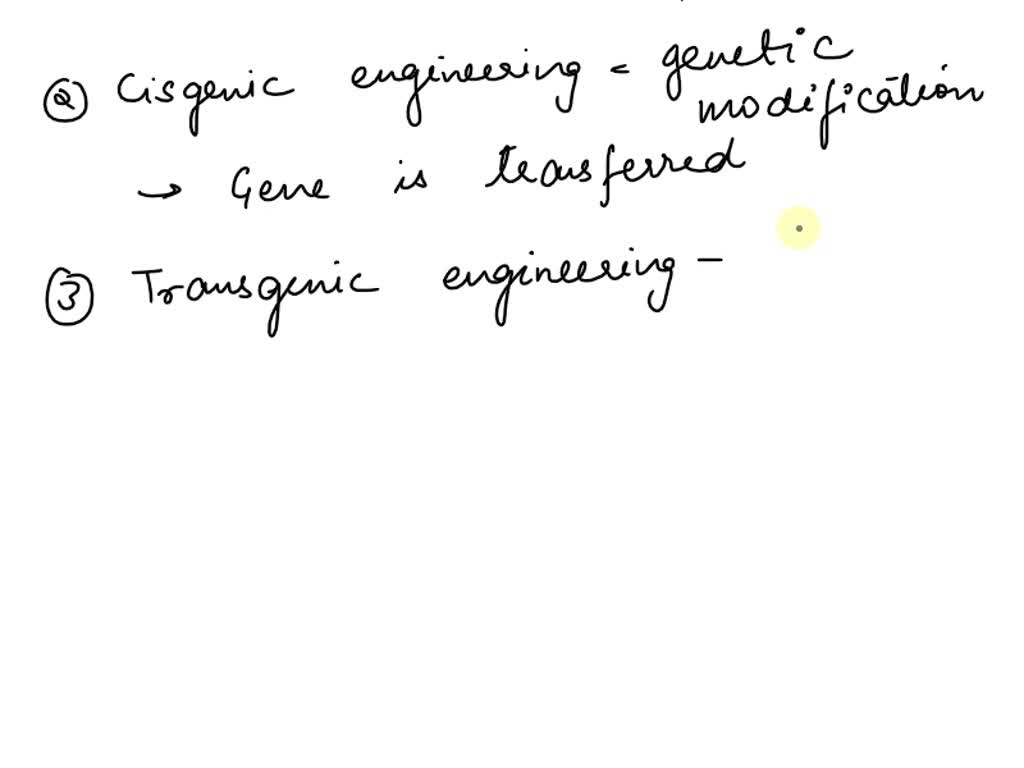 ② Cisgenic engineering = genetic
modification
→ Gene is transferred
③ Transgenic engineering -